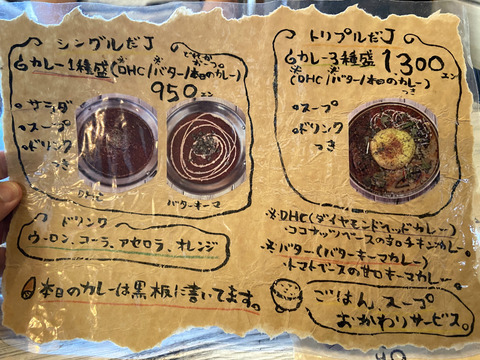 シングルだJ
カレー1種盛
どれか一つ
(DHC/バター/本日のカレー)
950エン
サラダ
スープ
ドリンク
つき
DHC
バターキーマ
ドリンク
ウーロン、コーラ、アセロラ、オレンジ
本日のカレーは黒板に書いてます。
トリプルだJ
カレー3種盛 1300エン
(DHC/バター/本日のカレー)
つき
スープ
ドリンク
つき
※DHC(ダイヤモンドヘッドカレー)
・ココナッツベースの辛口チキンカレー。
※バター(バターキーマカレー)
・トマトベースの甘口キーマカレー。
ごはん スープ
おかわりサービス。